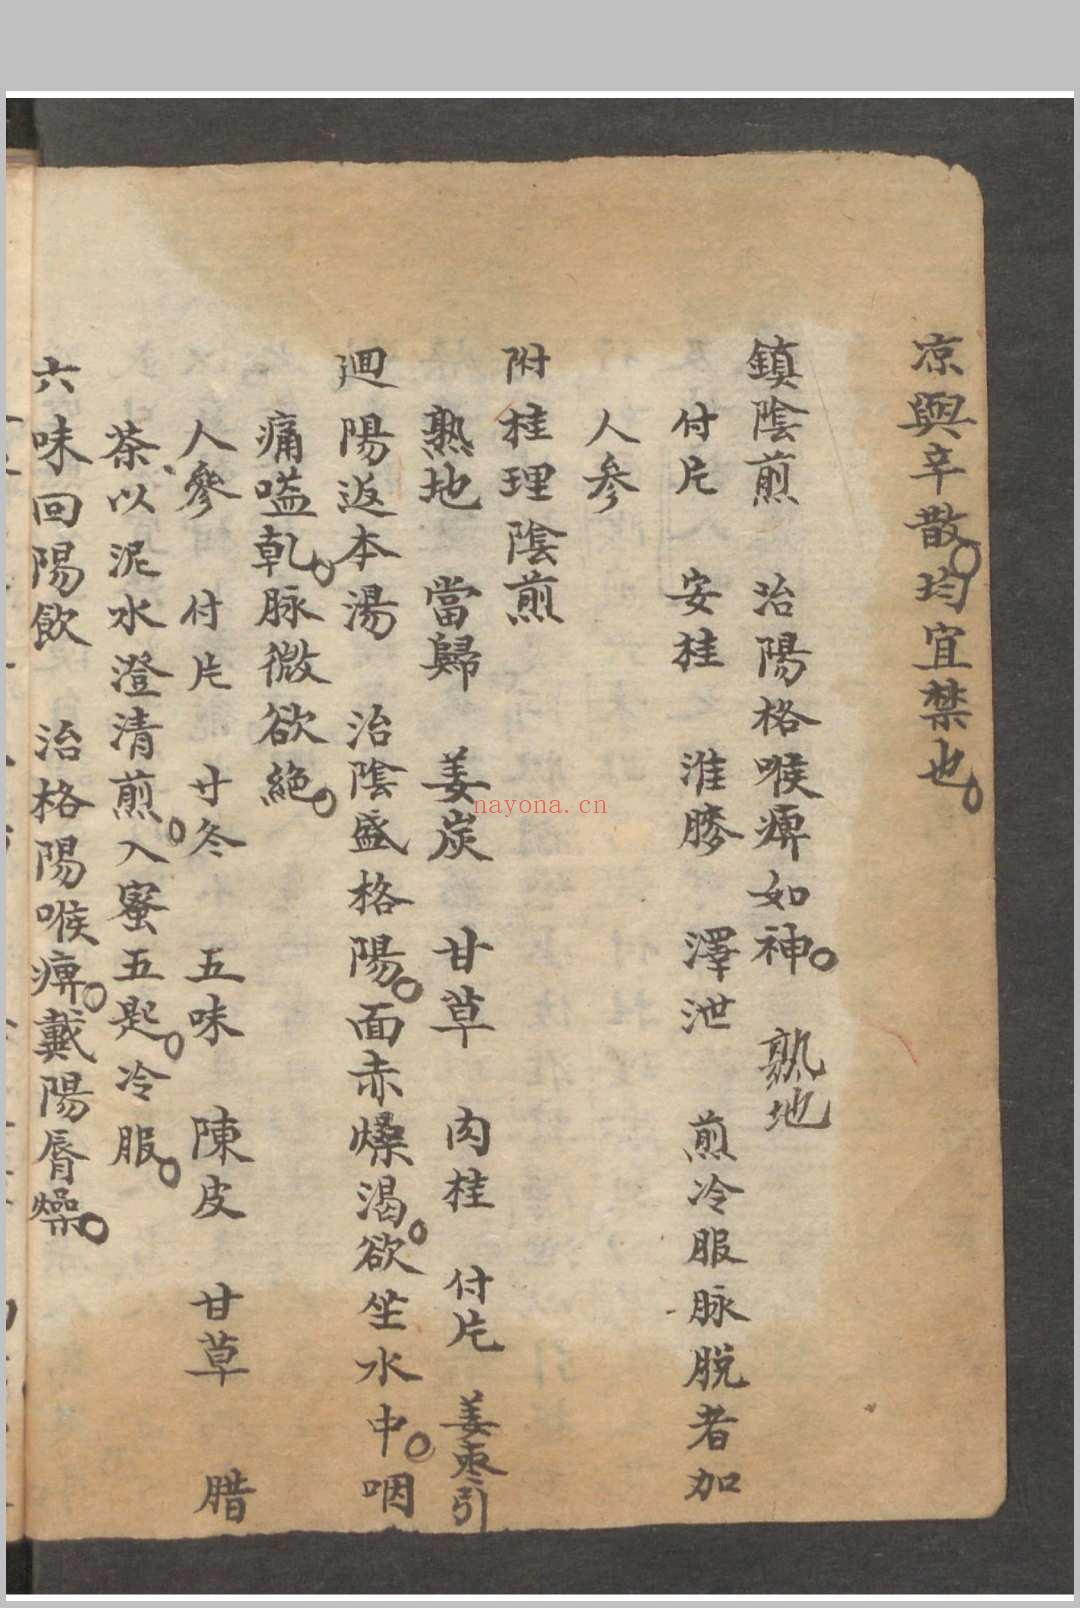 凉與辛散。均宜禁也。
鎮陰煎 治陽格喉痺如神。 熟地
付片 安桂 淮膝 澤泄 煎冷服脉脱者加
人參
附桂理陰煎
熟地 當歸 姜炭 甘草 肉桂 付片 姜枣引
迴陽返本湯 治陰盛格陽。面赤燥渴。欲坐水中。咽
痛嗌乾。脉微欲絶。
人參 付片 寸冬 五味 陳皮 甘草 腊
茶、以泥水澄清煎。入蜜五匙。冷服。
六味回陽飲 治格陽喉痺。戴陽唇燥。
nayona.cn